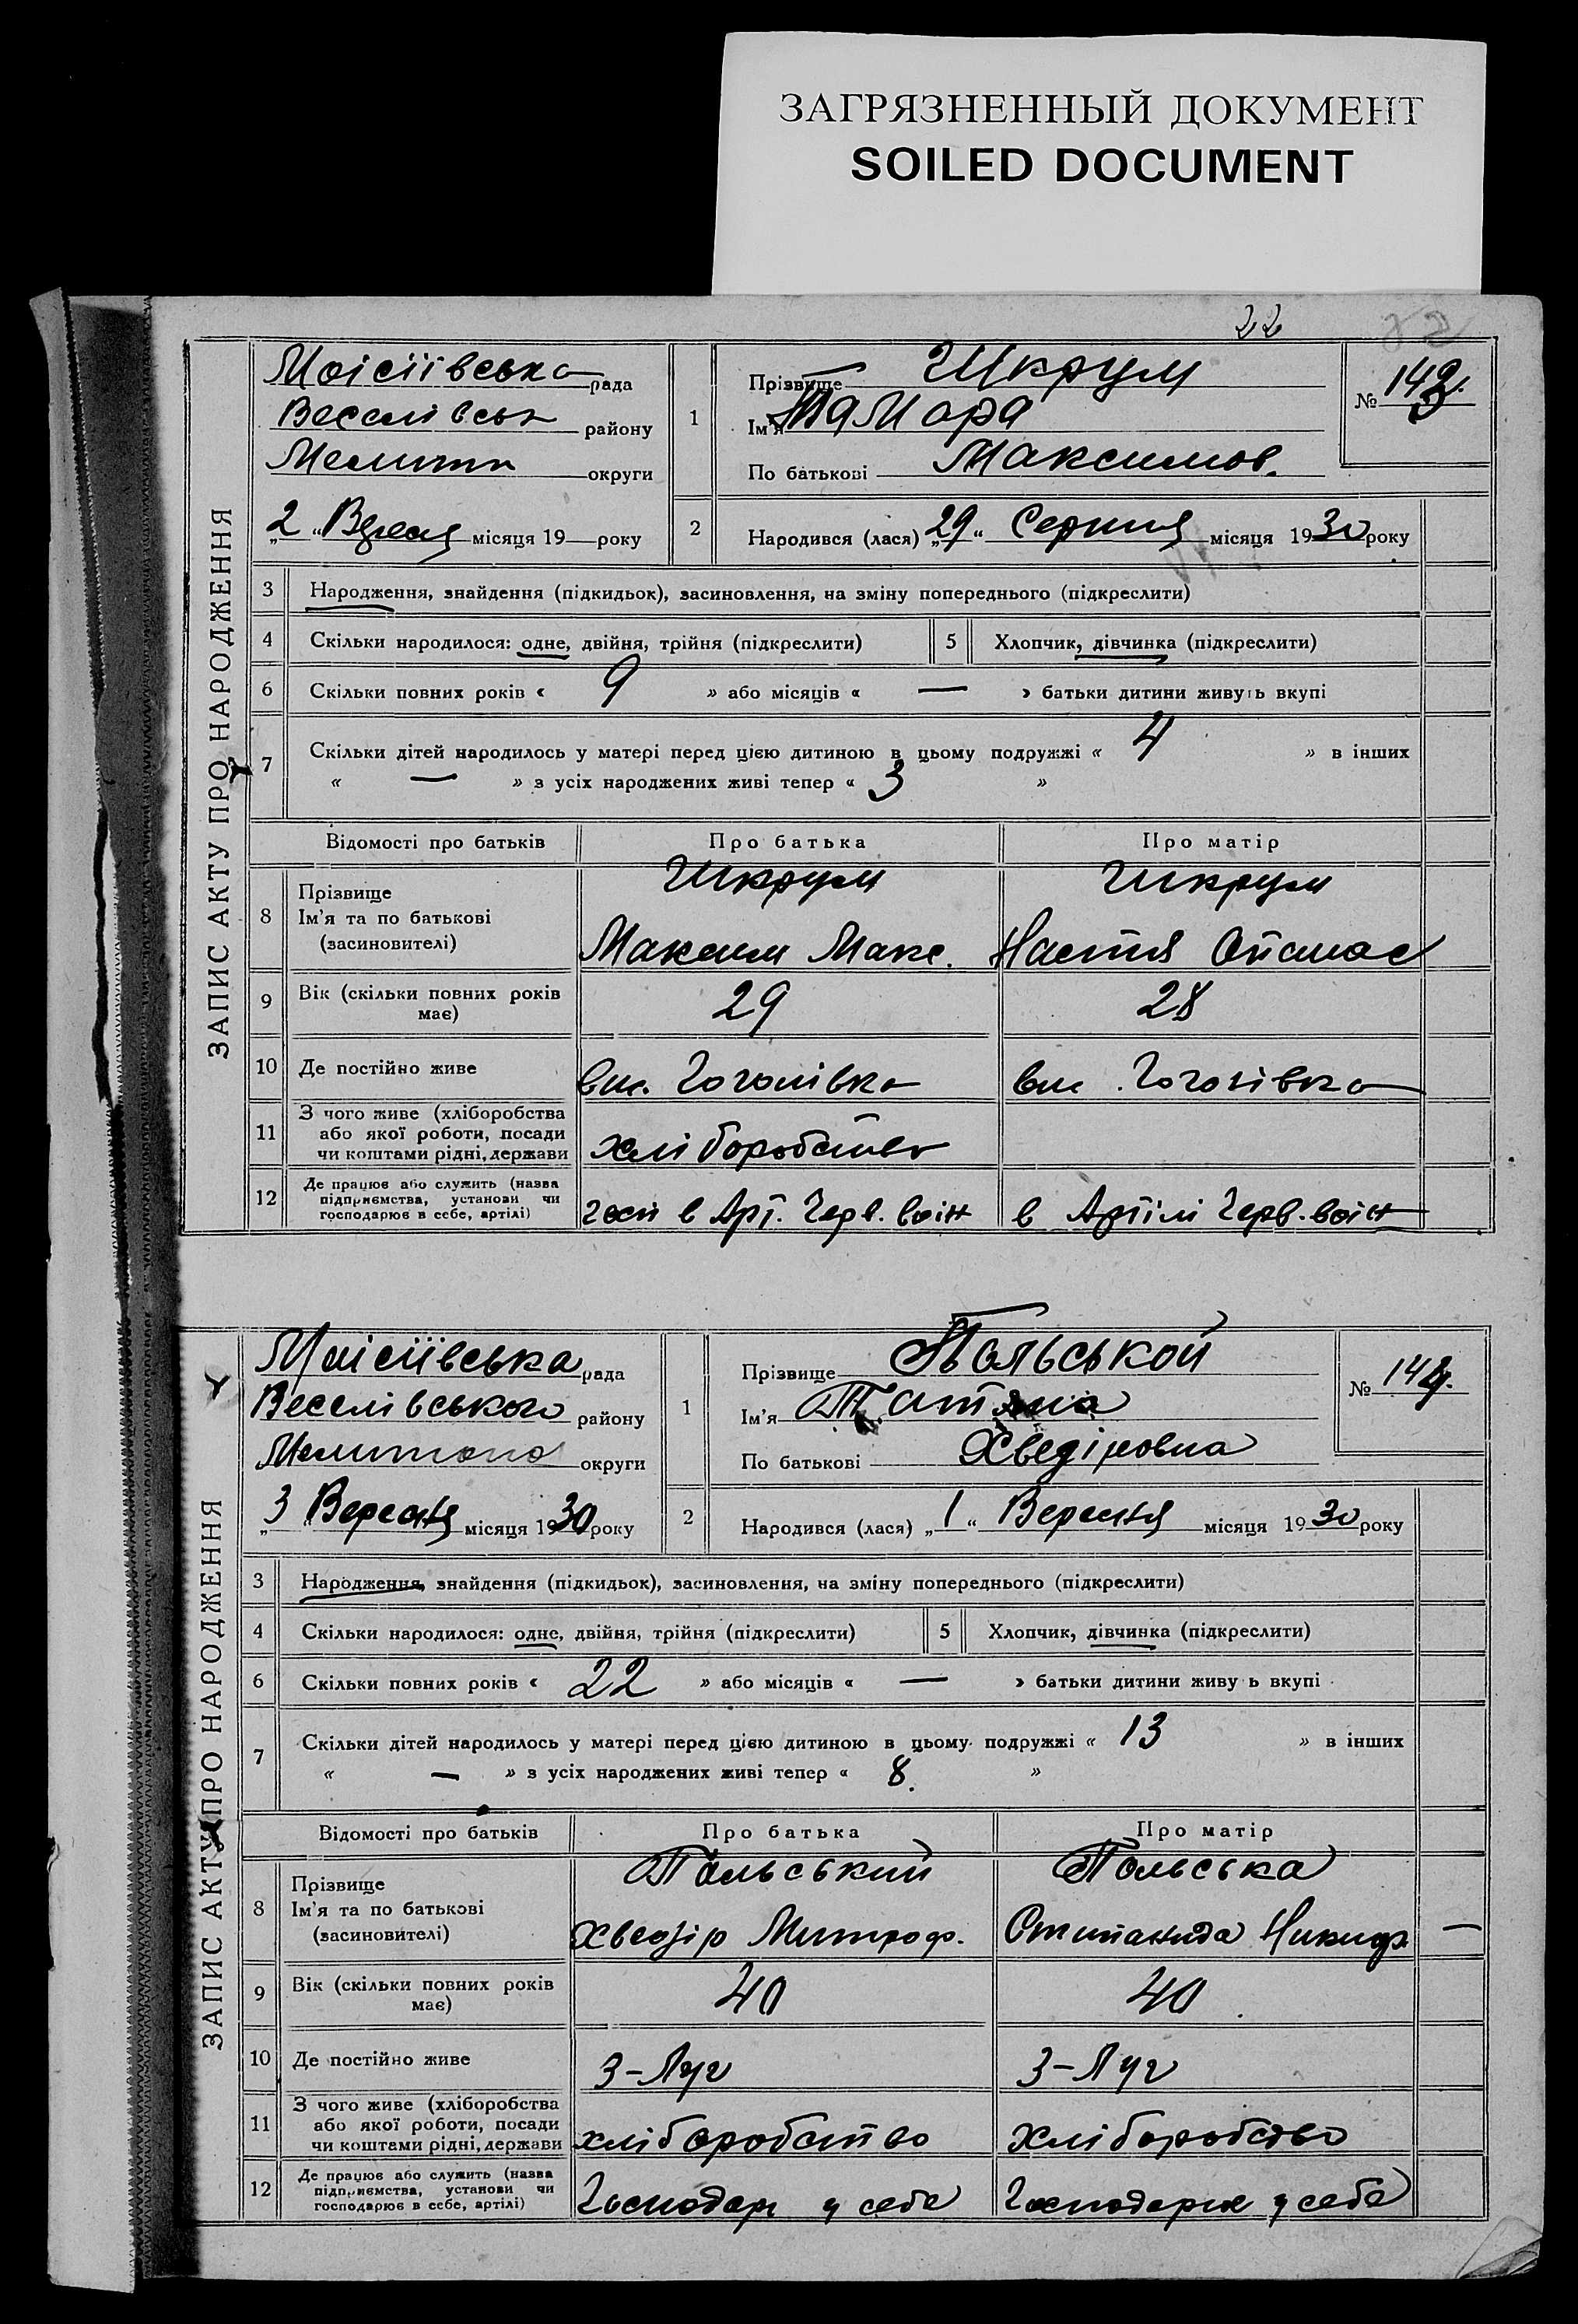 ЗАГРЯЗНЕННЫЙ ДОКУМЕНТ
SOILED DOCUMENT
22
ЗАПИС АКТУ ПРО НАРОДЖЕННЯ
Моісіївська рада
Веселівськ району
Мелитп округи
„2“ Вересня місяця 19 року
1
Прізвище Шкрум
Ім'я Тамара
По батькові Максимов.
№ 143.
2
Народився (лася) „29“ Серпня місяця 1930 року
3 Народження, знайдення (підкидьок), засиновлення, на зміну попереднього (підкреслити)
4 Скільки народилося: одне, двійня, трійня (підкреслити) 5 Хлопчик, дівчинка (підкреслити)
6 Скільки повних років « 9 » або місяців « — » батьки дитини живуть вкупі
7 Скільки дітей народилось у матері перед цією дитиною в цьому подружжі « 4 » в інших
« — » з усіх народжених живі тепер « 3 »
Відомості про батьків Про батька Про матір
8 Прізвище Ім'я та по батькові (засиновителі)
Шкрум Шкрум
Максим Макс. Настя Опанас
9 Вік (скільки повних років має) 29 28
10 Де постійно живе вис. Гоголівка вис. Гоголівка
11 З чого живе (хліборобства або якої роботи, посади чи коштами рідні, держави хліборобство
12 Де працює або служить (назва підприємства, установи чи господарює в себе, артілі) госп в Арт. Черв. воін в Артілі Черв. воін
ЗАПИС АКТУ ПРО НАРОДЖЕННЯ
Моісіївська рада
Веселівського району
Мелитопо округи
„3“ Вересня місяця 1930 року
1
Прізвище Польськой
Ім'я Татяна
По батькові Хведіровна
№ 144.
2
Народився (лася) „1“ Вересня місяця 1930 року
3 Народження, знайдення (підкидьок), засиновлення, на зміну попереднього (підкреслити)
4 Скільки народилося: одне, двійня, трійня (підкреслити) 5 Хлопчик, дівчинка (підкреслити)
6 Скільки повних років « 22 » або місяців « — » батьки дитини живу ь вкупі
7 Скільки дітей народилось у матері перед цією дитиною в цьому подружжі « 13 » в інших
« — » з усіх народжених живі тепер « 8. »
Відомості про батьків Про батька Про матір
8 Прізвище Ім'я та по батькові (засиновителі)
Польський Польська
Хведір Митроф. Степанида Никиф. —
9 Вік (скільки повних років має) 40 40
10 Де постійно живе З-Луг З-Луг
11 З чого живе (хліборобства або якої роботи, посади чи коштами рідні, держави хліборобство хліборобство
12 Де працює або служить (назва підприємства, установи чи господарює в себе, артілі) Господарь у себе Господарює у себе